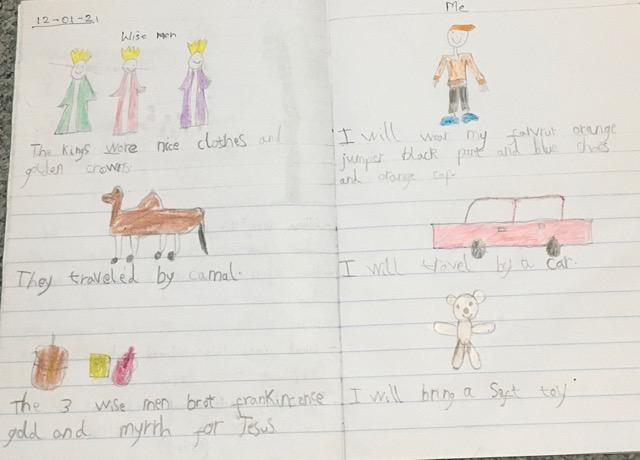 12-01-21
Wise men
The kings wore nice clothes and
golden crowns
They traveled by camal.
The 3 wise men brot frankincence
gold and myrrh for Jesus
Me
I will wear my favrut orange
jumper black pant and blue shoes
and orange cap.
I will travel by a car.
I will bring a Soft toy.